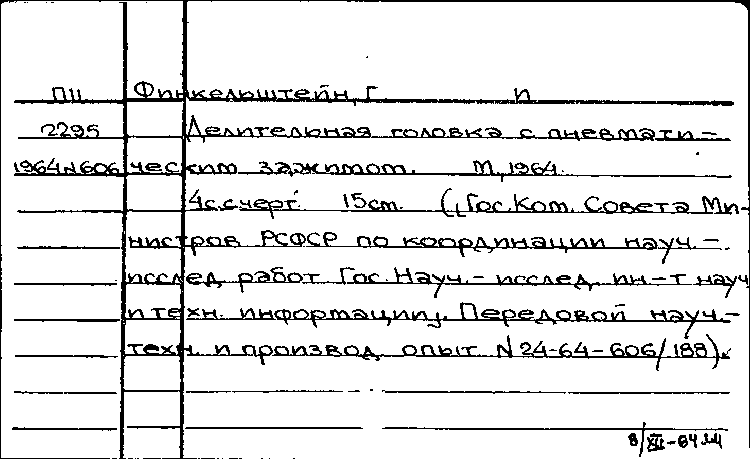 ПЦ Финкельштейн, Г п
2295 Делительная головка с пневмати-
1964 N 606 ческим зажимом. М, 1964.
4с.с черт. 15см. (Гос. Ком. Совета Ми-
нистров РСФСР по координации науч.-
исслед работ Гос. Науч.- исслед. ин-т науч
и техн. информации). Передовой науч.-
техн. и производ. опыт N 24-64-606/188).
8/XII-64